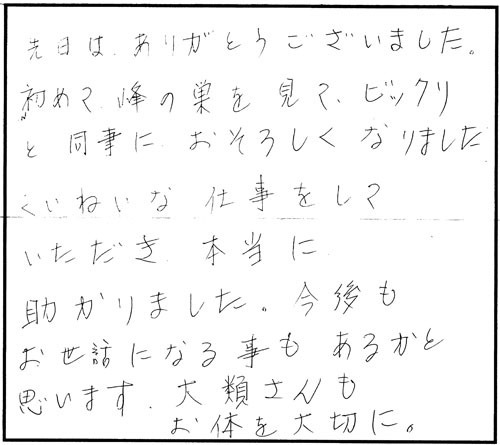 先日は、ありがとうございました。
初めて、峰の巣を見て、ビックリ
と同事に、おそろしくなりました
ていねいな仕事をして
いただき、本当に
助かりました。今後も
お世話になる事もあるかと
思います。大類さんも
お体を大切に。